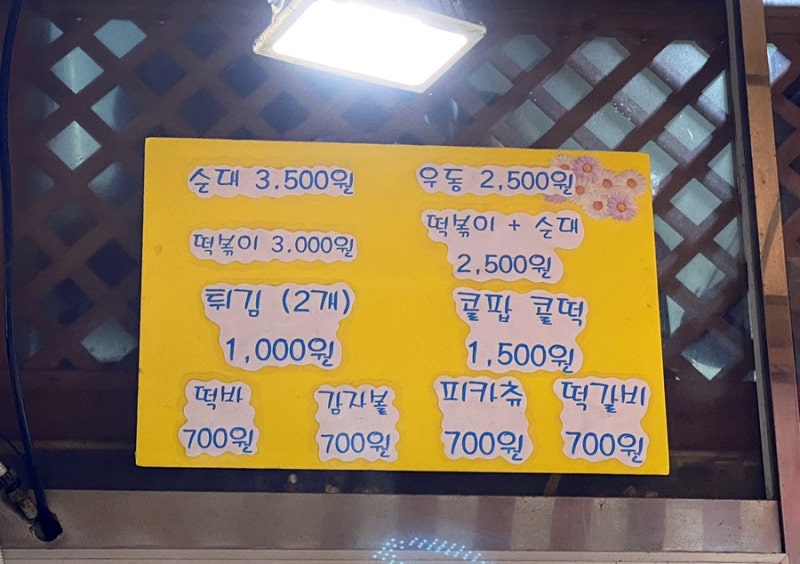 순대 3.500원
우동 2,500원
떡볶이 3.000원
떡볶이 + 순대
2,500원
튀김 (2개)
1,000원
콜팝 콜떡
1,500원
떡바
700원
감자볼
700원
피카츄
700원
떡갈비
700원